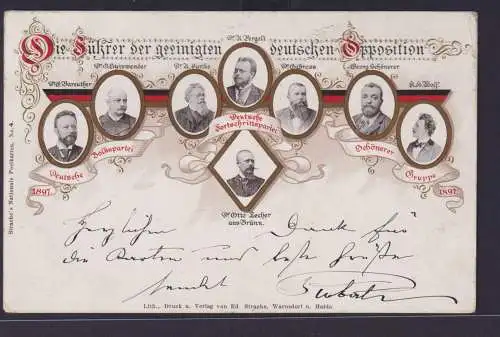 Die Führer der geeinigten deutschen Opposition
Dr. A. Bergelt
Dr. Funke
Dr. Gross
Georg Schönerer
K. H. Wolf
Deutsche Volkspartei
Deutsche Fortschrittspartei
Schönerer Gruppe
1897
1897
Dr. Otto Lecher
aus Brünn.
Strache's Nationale Postkarten, No. 4.
Herzlichen Dank für
die Karten und beste Grüße
sendet
Lith., Druck u. Verlag von Ed. Strache, Warnsdorf u. Haida.